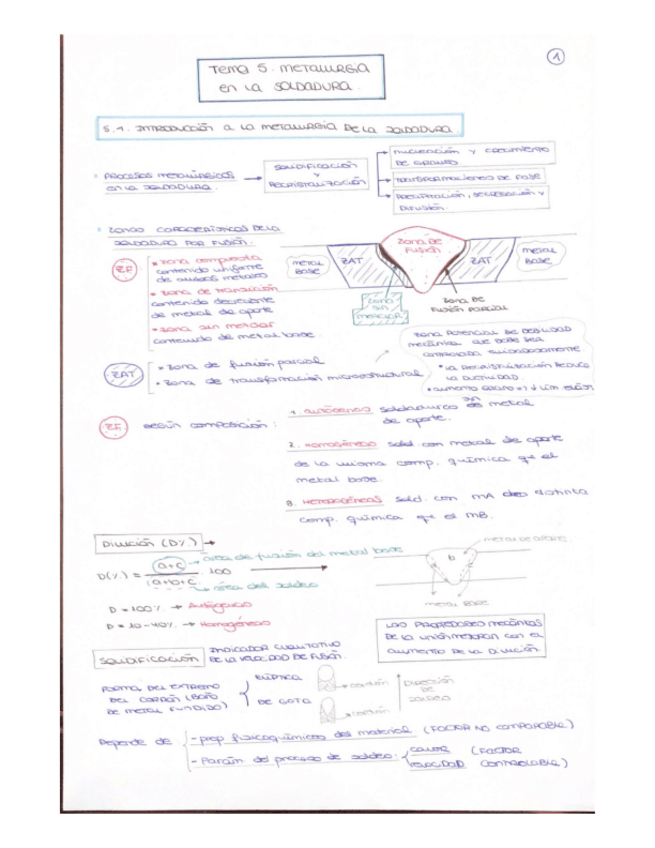 1
Tema 5. METALURGIA
en la SOLDADURA.
5.1. INTRODUCCIÓN A LA METALURGIA DE LA SOLDADURA.
PROCESOS METALÚRGICOS
EN LA SOLDADURA.
SOLIDIFICACIÓN
Y
RECRISTALIZACIÓN
NUCLEACIÓN Y CRECIMIENTO
DE GRANO.
TRANSFORMACIONES DE FASE
PRECIPITACIÓN, SEGREGACIÓN Y
DIFUSIÓN.
ZONAS CARACTERÍSTICAS DE LA
SOLDADURA POR FUSIÓN.
ZF
* zona compuesta
contenido uniforme
de ambos metales
* zona de transición
contenido decreciente
de metal de aporte
* zona sin mezclar
contenido de metal base
METAL
BASE
ZAT
ZONA DE
FUSIÓN
ZAT
METAL
BASE
ZONA
SIN
MEZCLAR
ZONA DE
FUSIÓN PARCIAL
ZAT
* Zona de fusión parcial
* Zona de transformación microestructural
ZONA POTENCIAL DE DEBILIDAD
MECÁNICA QUE DEBE SER
CONTROLADA CUIDADOSAMENTE
* LA RECRISTALIZACIÓN REDUCE
LA DUCTILIDAD
* AUMENTO GRANO → ↓ LÍM. ELÁST.
ZF
según composición:
1. AUTÓGENAS soldaduras sin metal
de aporte.
2. HOMOGÉNEAS sold con metal de aporte
de la misma comp. química que el
metal base.
3. HETEROGÉNEAS sold. con MA de distinta
comp. química que el MB.
Dilución (D%) →
D(%) = (a+c) / (a+b+c) · 100
área de fusión del metal base
área del soldeo
METAL DE APORTE
b
METAL BASE
D = 100% → Autógenas
D = 10-40% → Homogéneas
LAS PROPIEDADES MECÁNICAS
DE LA UNIÓN MEJORAN CON EL
AUMENTO DE LA DILUCIÓN.
SOLIDIFICACIÓN
INDICADOR CUALITATIVO
DE LA VELOCIDAD DE FUSIÓN.
FORMA DEL EXTREMO
DEL CORDÓN (BAÑO
DE METAL FUNDIDO)
ELÍPTICA
DE GOTA
→ cordón
→ cordón
DIRECCIÓN
DE
SOLDEO
Depende de
- prop fisicoquímicas del material (FACTOR NO CONTROLABLE)
- Parám del proceso de soldeo: CALOR (FACTOR
VELOCIDAD CONTROLABLE)